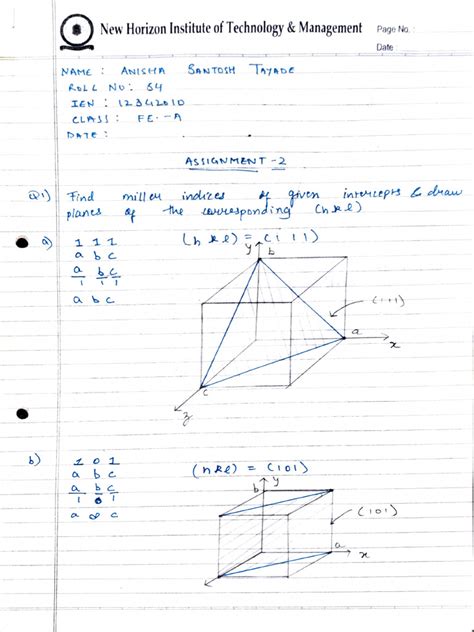 New Horizon Institute of Technology & Management Page No. :
Date :
NAME : ANISHA SANTOSH TAYADE
ROLL NO : 54
IEN : 12342010
CLASS : FE - A
DATE :
ASSIGNMENT - 2
Q1) Find miller indices of given intercepts & draw
planes of the corresponding (h k l)
a) 1 1 1 (h k l) = (1 1 1)
a b c
a/1 b/1 c/1
a b c
y b
(111)
a
x
c
z
b) 1 0 1 (h k l) = (101)
a b c
a/1 b/0 c/1
a ∞ c
b y
(101)
a
x